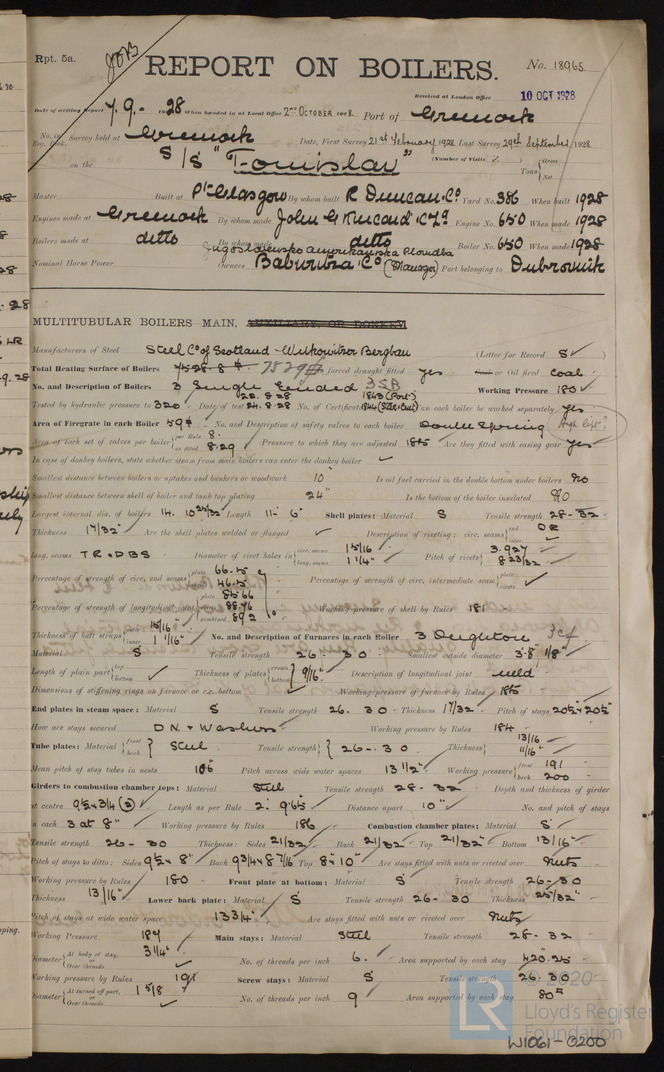 Rpt. 5a.
REPORT ON BOILERS.
No. 18965
Received at London Office 10 OCT 1928
Date of writing Report 7.9.- 1928 When handed in at Local Office 2nd OCTOBER 1928. Port of Greenock
No. in Reg. Book. Survey held at Greenock Date, First Survey 21st February 1928 Last Survey 29th September 1928
on the S/S "Tomislav" (Number of Visits ) Tons Gross Net
Master Built at Pt Glasgow By whom built R Duncan & Co Yard No. 386 When built 1928
Engines made at Greenock By whom made John G Kincaid & Co Ld Engine No. 650 When made 1928
Boilers made at ditto By whom made ditto Boiler No. 650 When made 1928
Nominal Horse Power Owners Jugoslavensko Amerikanska Plovidba Baburizza & Co (Manager) Port belonging to Dubrovnik
MULTITUBULAR BOILERS MAIN, AUXILIARY, OR DONKEY
Manufacturers of Steel Steel Co of Scotland - Witkowitzer Bergbau (Letter for Record S)
Total Heating Surface of Boilers 7529 Is forced draught fitted yes or Oil fired coal
No. and Description of Boilers 3 Single Ended 3SB Working Pressure 180
Tested by hydraulic pressure to 320 Date of test 22.8.28 24.8.28 No. of Certificate 1843 (Port) 1844 (Star & Cent) Can each boiler be worked separately yes
Area of Firegrate in each Boiler 59 No. and Description of safety valves to each boiler Double Spring High lift?
Area of each set of valves per boiler per Rule 8. as fitted 8.29 Pressure to which they are adjusted 185 Are they fitted with easing gear yes
In case of donkey boilers, state whether steam from main boilers can enter the donkey boiler
Smallest distance between boilers or uptakes and bunkers or woodwork 10" Is oil fuel carried in the double bottom under boilers No
Smallest distance between shell of boiler and tank top plating 24" Is the bottom of the boiler insulated No
Largest internal dia. of boilers 14. 10 25/32 Length 11'- 6" Shell plates: Material S Tensile strength 28-32
Thickness 1 7/32" Are the shell plates welded or flanged Description of riveting: circ. seams end DR inter.
long. seams TR & DBS Diameter of rivet holes in circ. seams 1 5/16 long. seams 1 1/4" Pitch of rivets 3.927 8 23/32
Percentage of strength of circ. end seams plate 66.5 rivets 46.5 Percentage of strength of circ. intermediate seam plate rivets
Percentage of strength of longitudinal joint plate 85.66 rivets 88.76 combined 89.2 Working pressure of shell by Rules 181
Thickness of butt straps outer 15/16" inner 1 1/16" No. and Description of Furnaces in each Boiler 3 Deighton 3cf
Material S Tensile strength 26-30 Smallest outside diameter 3'-8 1/8"
Length of plain part top bottom Thickness of plates crown bottom 9/16" Description of longitudinal joint weld
Dimensions of stiffening rings on furnace or c.c. bottom Working pressure of furnace by Rules 185
End plates in steam space: Material S Tensile strength 26-30 Thickness 1 7/32 Pitch of stays 20½ x 20½
How are stays secured DN & Washers Working pressure by Rules 184
Tube plates: Material front back Steel Tensile strength 26-30 Thickness 13/16" 11/16"
Mean pitch of stay tubes in nests Pitch across wide water spaces 13 1/2" Working pressure front 191 back 200
Girders to combustion chamber tops: Material Steel Tensile strength 28-32 Depth and thickness of girder
at centre 9½ x 3/4 (2) Length as per Rule 2'. 9.65 Distance apart 10" No. and pitch of stays
in each 3 at 8" Working pressure by Rules 186 Combustion chamber plates: Material S
Tensile strength 26-30 Thickness: Sides 21/32 Back 21/32 Top 21/32 Bottom 13/16"
Pitch of stays to ditto: Sides 9½ x 8" Back 9 3/4 x 8 7/16 Top 8 x 10" Are stays fitted with nuts or riveted over Nuts
Working pressure by Rules 180 Front plate at bottom: Material S Tensile strength 26-30
Thickness 13/16" Lower back plate: Material S Tensile strength 26-30 Thickness 25/32"
Pitch of stays at wide water space 13 3/4" Are stays fitted with nuts or riveted over Nuts
Working Pressure 187 Main stays: Material Steel Tensile strength 28-32
Diameter At body of stay, or Over threads 3 1/4" No. of threads per inch 6. Area supported by each stay 420.25
Working pressure by Rules 191 Screw stays: Material S Tensile strength 26-30
Diameter At turned off part, or Over threads 1 5/8 No. of threads per inch 9 Area supported by each stay 80
© 2020
LR
Lloyd's Register
Foundation
W1061-0200